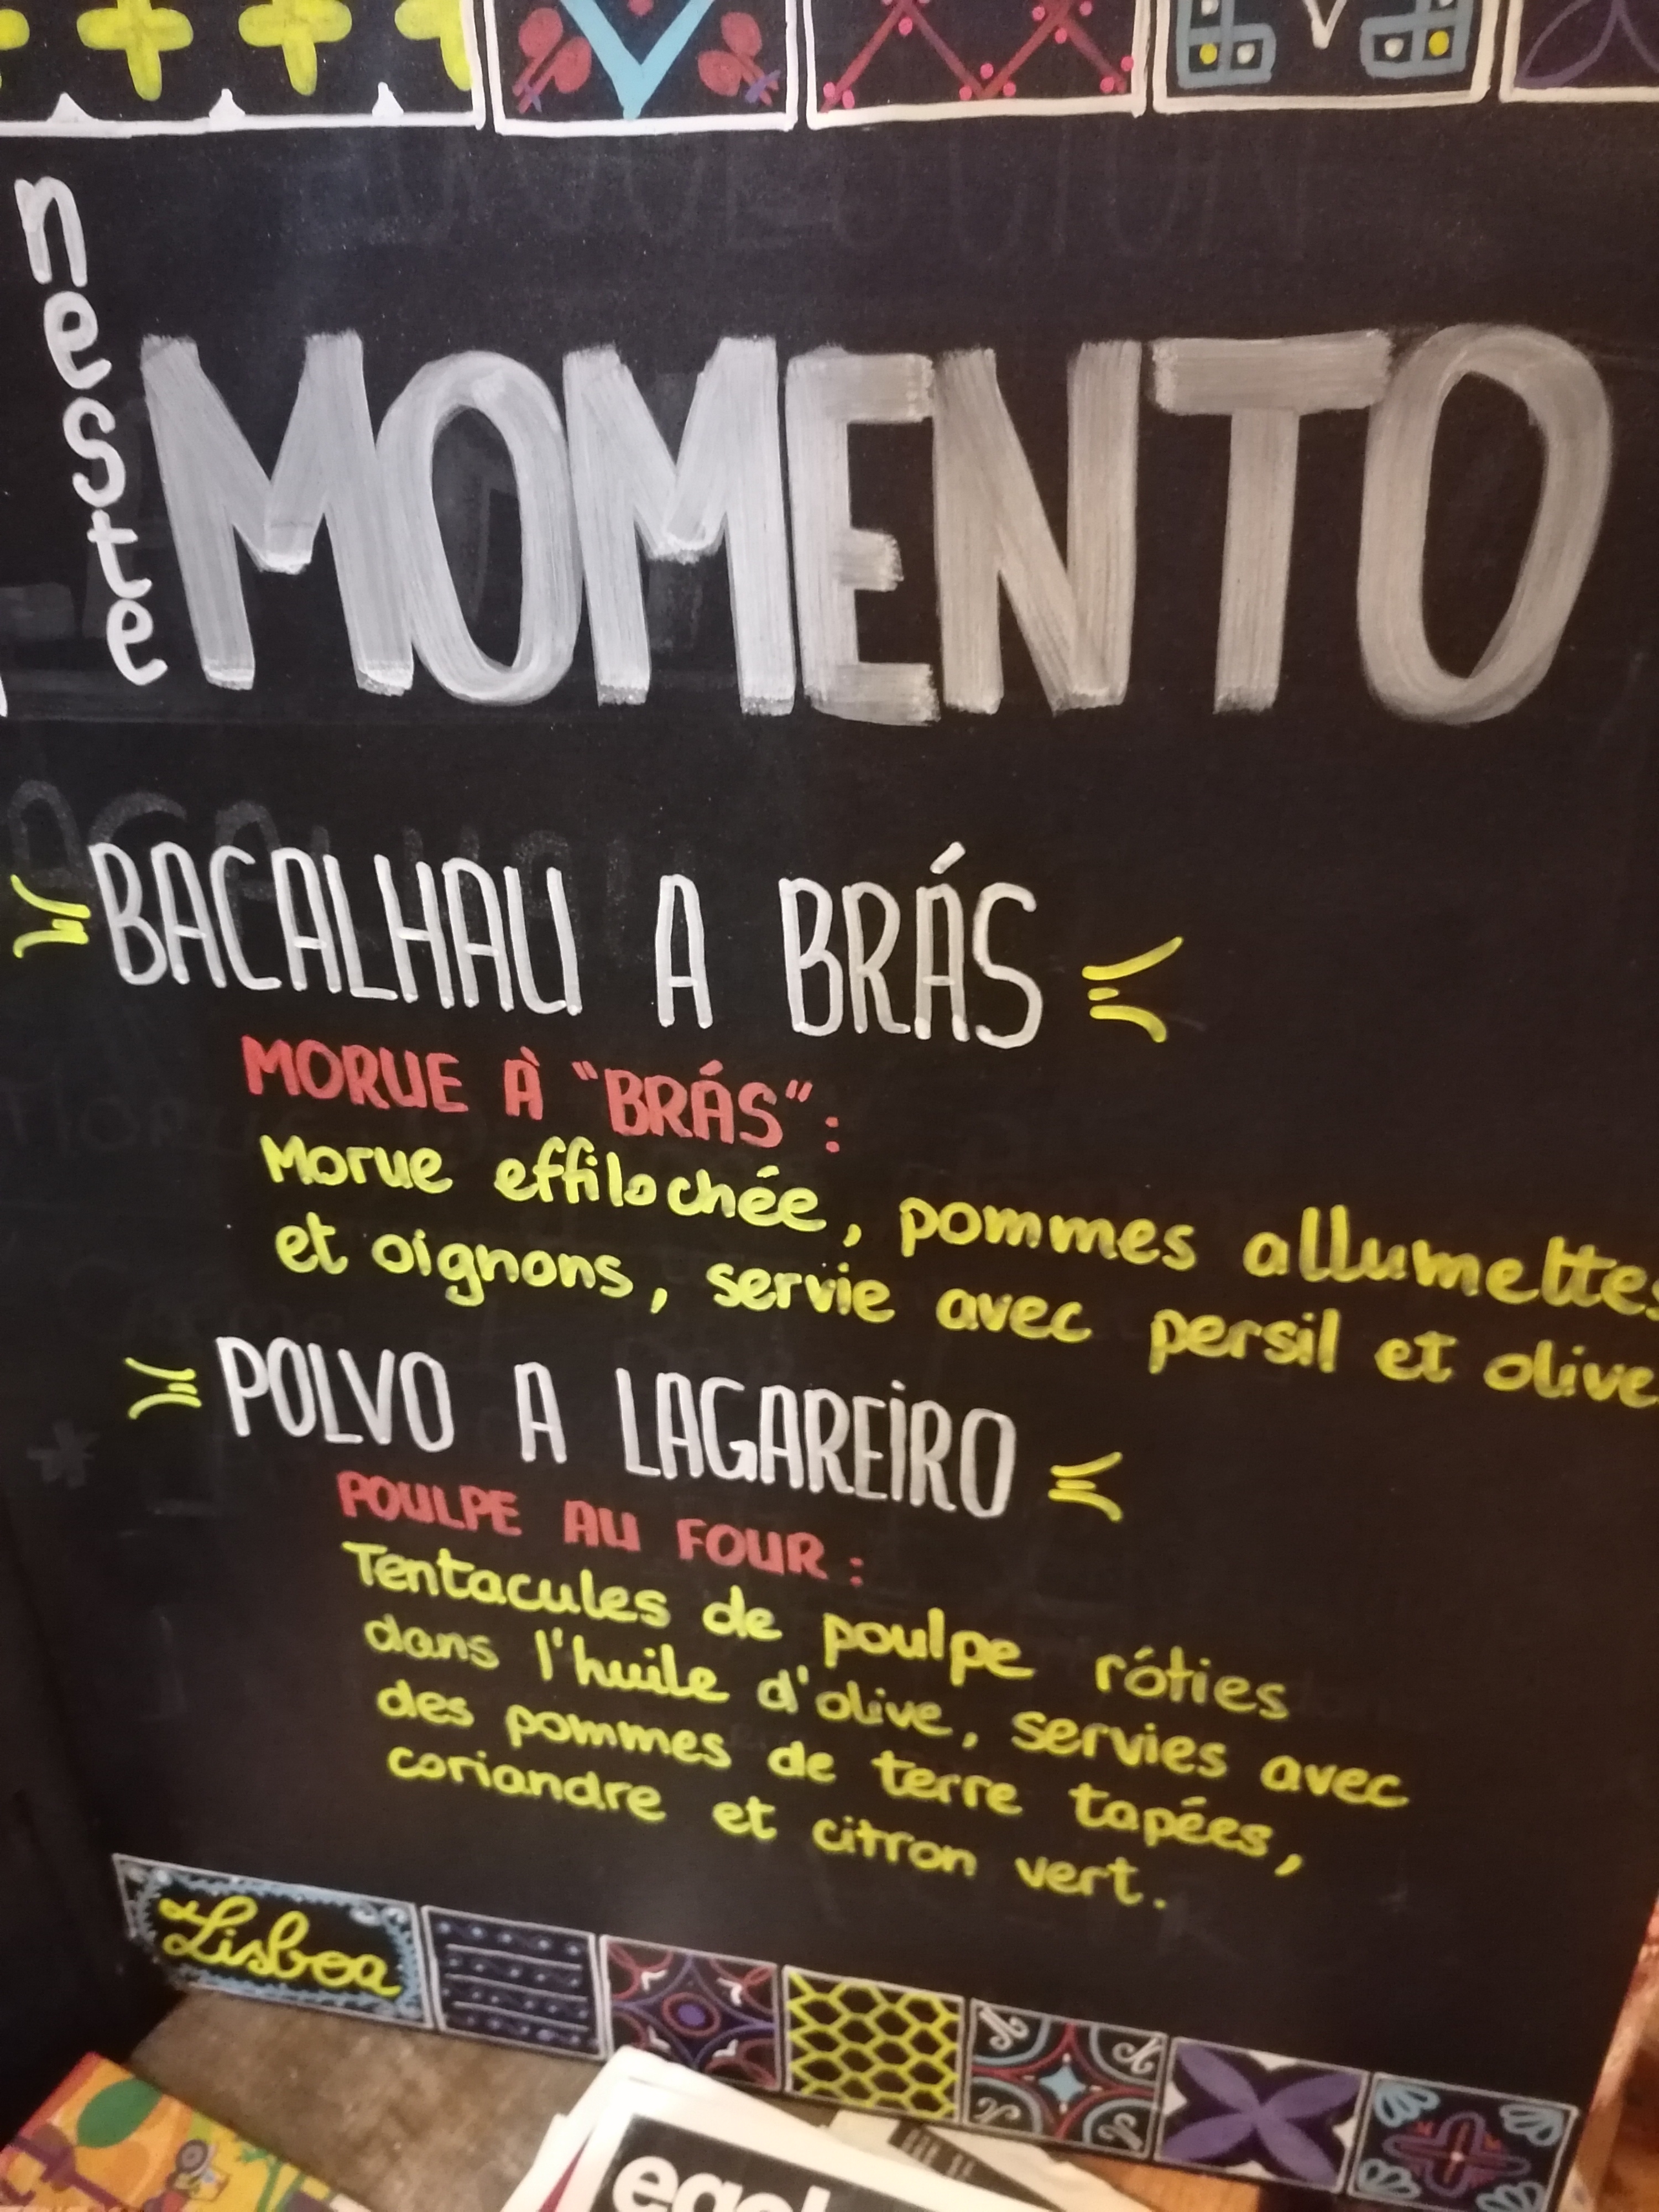 neste
MOMENTO
BACALHAU A BRÁS
MORUE À "BRÁS":
Morue effilochée, pommes allumettes
et oignons, servie avec persil et olive
POLVO A LAGAREIRO
POULPE AU FOUR:
Tentacules de poulpe róties
dans l'huile d'olive, servies avec
des pommes de terre tapées,
coriandre et citron vert.
Lisboa